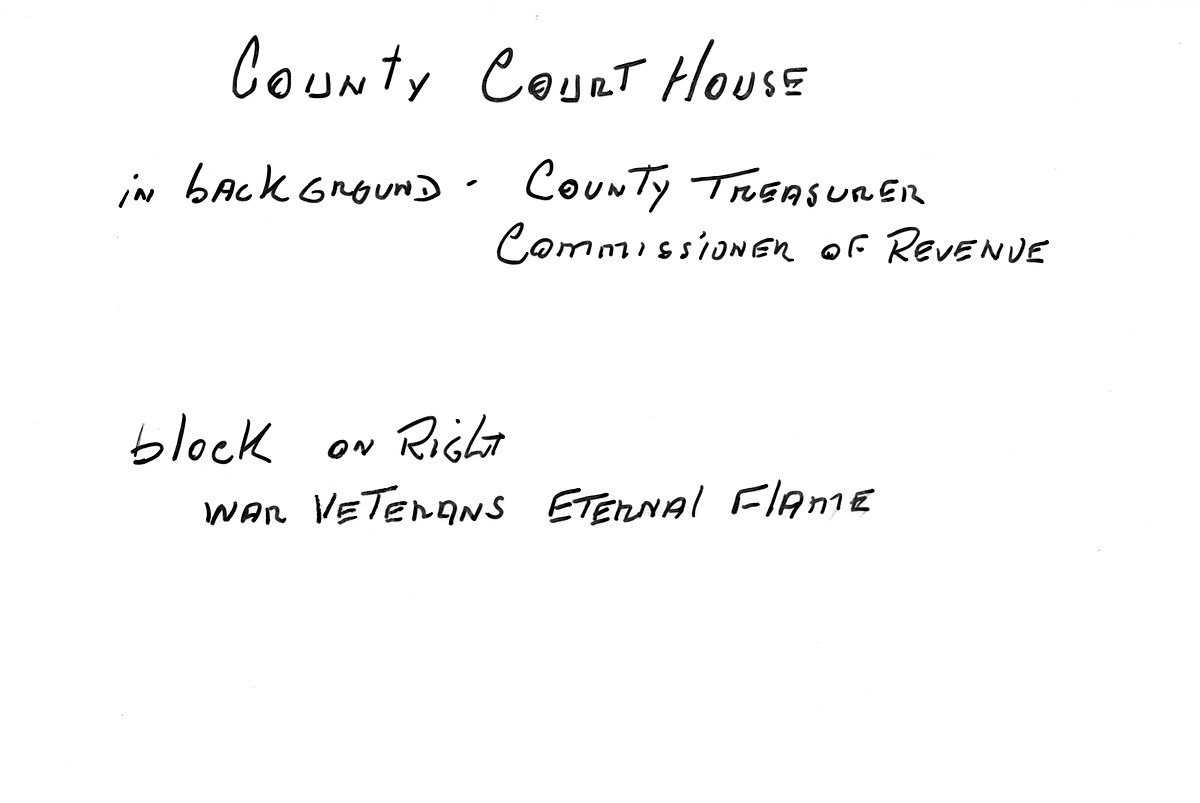 County Court House
in background - County Treasurer
Commissioner of Revenue
block on Right
War Veterans Eternal Flame